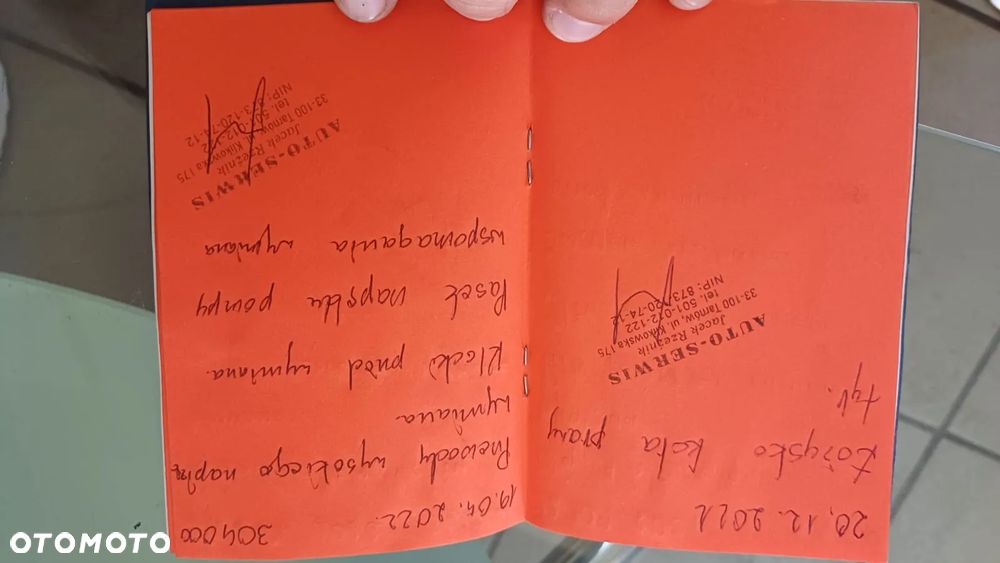 20.12.2021
Łożysko koła prawy
tył.
AUTO-SERWIS
Jacek Rzeźnik
33-100 Tarnów, ul. Klikowska 175
tel. 501-012-122
NIP: 873-120-74-12
19.04.2022. 304000
Przewody wysokiego napię
wymiana.
Klocki przód wymiana.
Pasek napędu pompy
wspomagania wymiana
AUTO-SERWIS
Jacek Rzeźnik
33-100 Tarnów, ul. Klikowska 175
tel. 501-012-122
NIP: 873-120-74-12
OTOMOTO